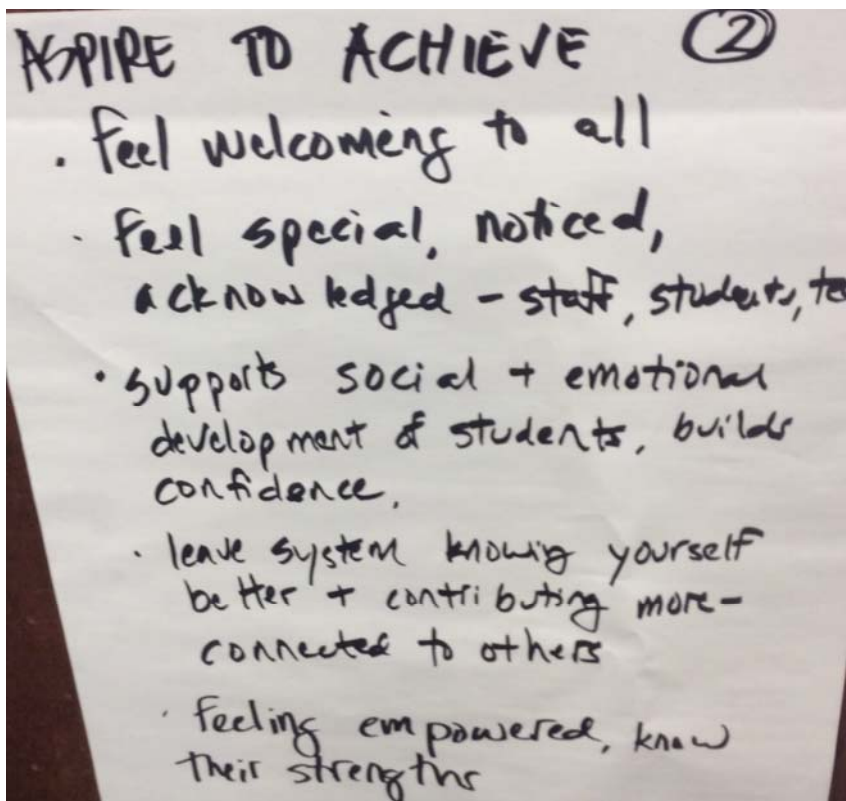 ASPIRE TO ACHIEVE ②
• feel welcoming to all
• feel special, noticed,
acknowledged - staff, students, te
• supports social + emotional
development of students, builds
confidence.
• leave system knowing yourself
better + contributing more -
connected to others
• feeling empowered, know
their strengths